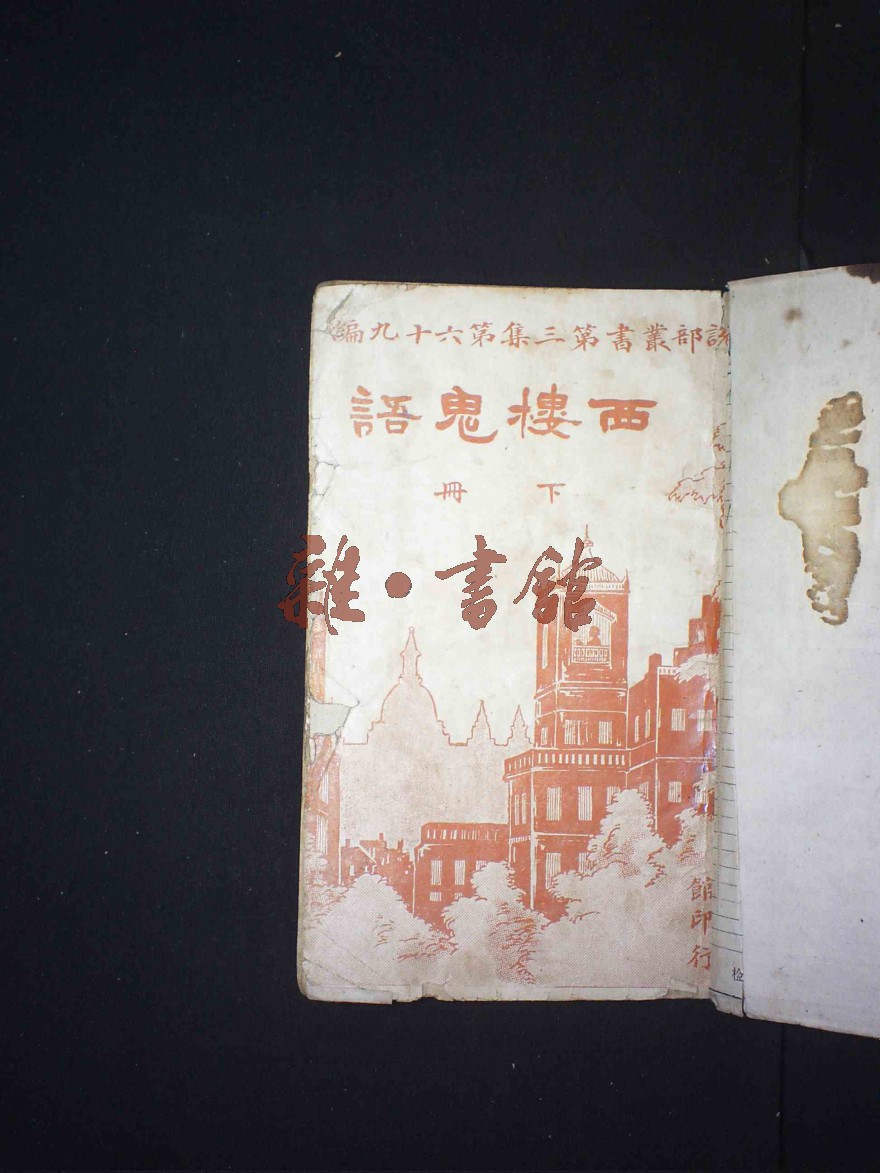 說部叢書第三集第六十九編
西樓鬼語
下冊
雜·書館
館印行
检